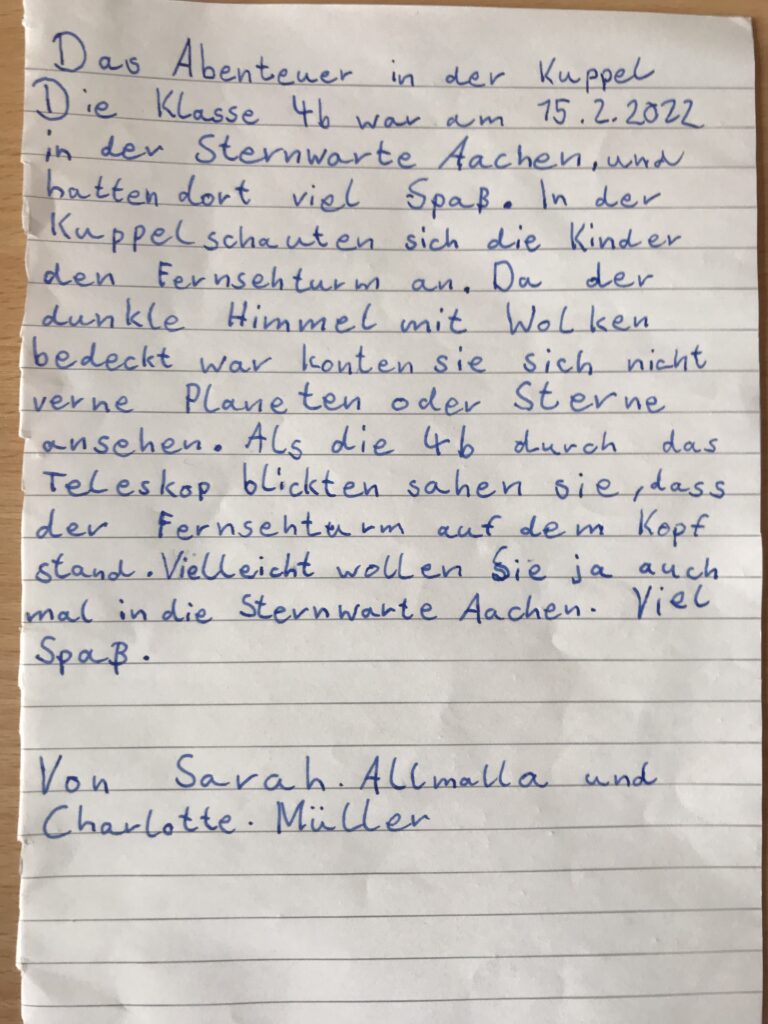 Das Abenteuer in der Kuppel
Die Klasse 4b war am 15.2.2022
in der Sternwarte Aachen, und
hatten dort viel Spaß. In der
Kuppel schauten sich die Kinder
den Fernsehturm an. Da der
dunkle Himmel mit Wolken
bedeckt war konten sie sich nicht
verne Planeten oder Sterne
ansehen. Als die 4b durch das
Teleskop blickten sahen sie, dass
der Fernsehturm auf dem Kopf
stand. Vielleicht wollen Sie ja auch
mal in die Sternwarte Aachen. Viel
Spaß.
Von Sarah. Allmalla und
Charlotte. Müller